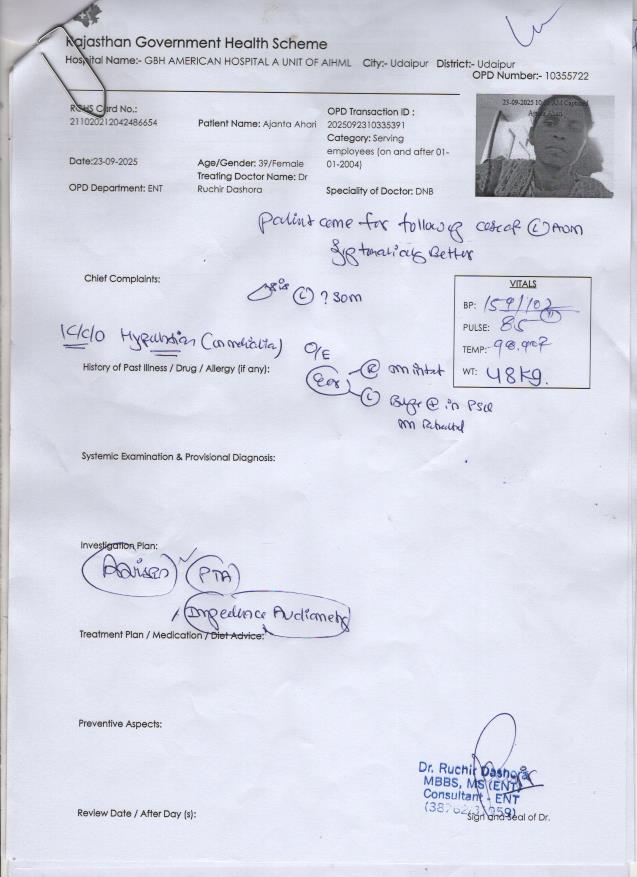 Rajasthan Government Health Scheme
Hospital Name:- GBH AMERICAN HOSPITAL A UNIT OF AIHML City:- Udaipur District:- Udaipur
OPD Number:- 10355722
RGHS Card No.:
211020212042486654
Patient Name: Ajanta Ahari
OPD Transaction ID :
2025092310335391
Category: Serving
employees (on and after 01-
01-2004)
Date:23-09-2025
Age/Gender: 39/Female
Treating Doctor Name: Dr
Ruchir Dashora
OPD Department: ENT
Speciality of Doctor: DNB
23-09-2025
Ajanta Ahari
Patient come for following case of (L) AOM
Better
Chief Complaints:
(L) ? SOM
VITALS
BP: 159/102
PULSE: 85
TEMP:-
WT: 48 Kg.
K/C/O Hypertension
O/E
History of Past Illness / Drug / Allergy (if any):
Ear
(R) intact
(L) in PSQ
Systemic Examination & Provisional Diagnosis:
Investigation Plan:
Advised PTA
Impedence Audiometry
Treatment Plan / Medication / Diet Advice:
Preventive Aspects:
Dr. Ruchir Dashora
MBBS, MS (ENT)
Consultant - ENT
Review Date / After Day (s):
Sign and Seal of Dr.